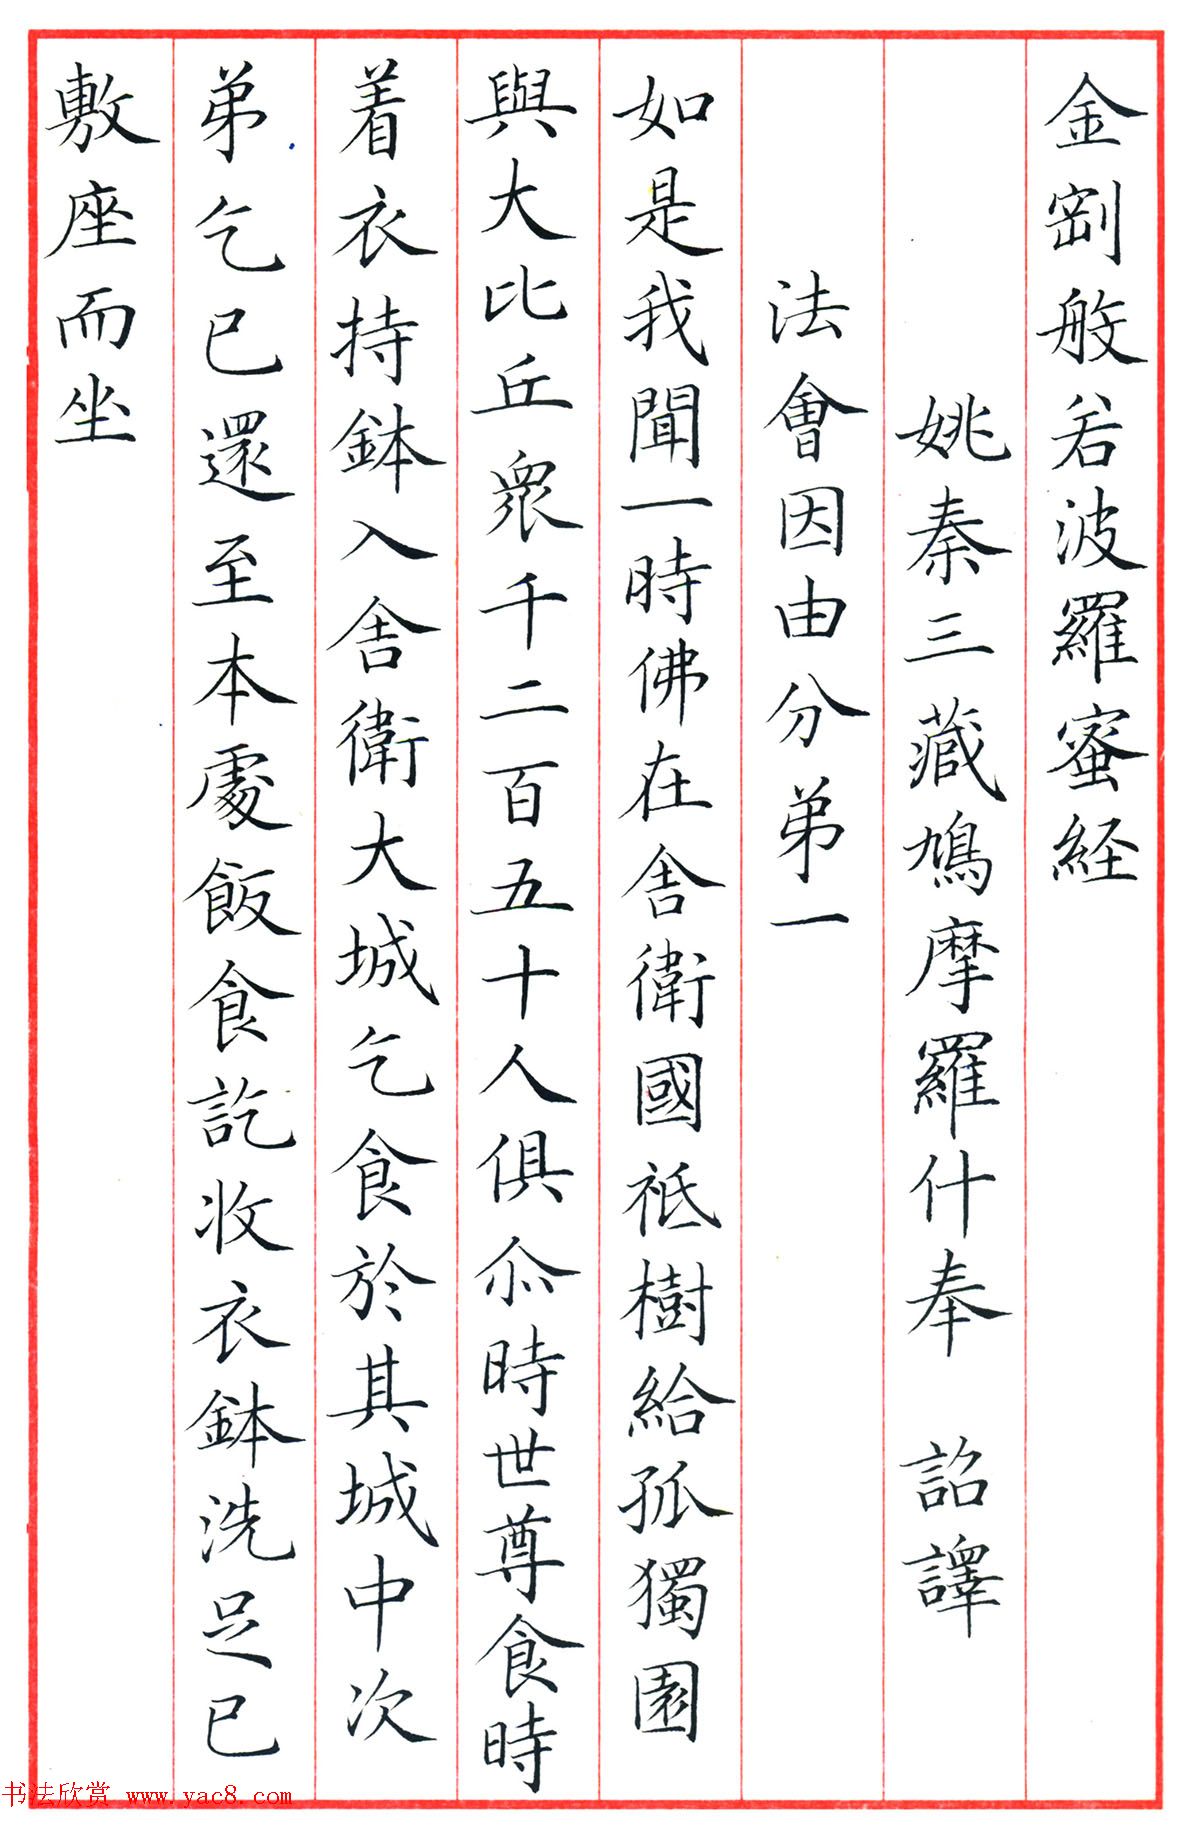 金剛般若波羅蜜経
姚秦三藏鳩摩羅什奉 詔譯
法會因由分弟一
如是我聞一時佛在舍衛國祇樹給孤獨園
與大比丘眾千二百五十人俱尒時世尊食時
着衣持鉢入舍衛大城乞食於其城中次
弟乞已還至本處飯食訖收衣鉢洗足已
敷座而坐
书法欣赏 www.yac8.com